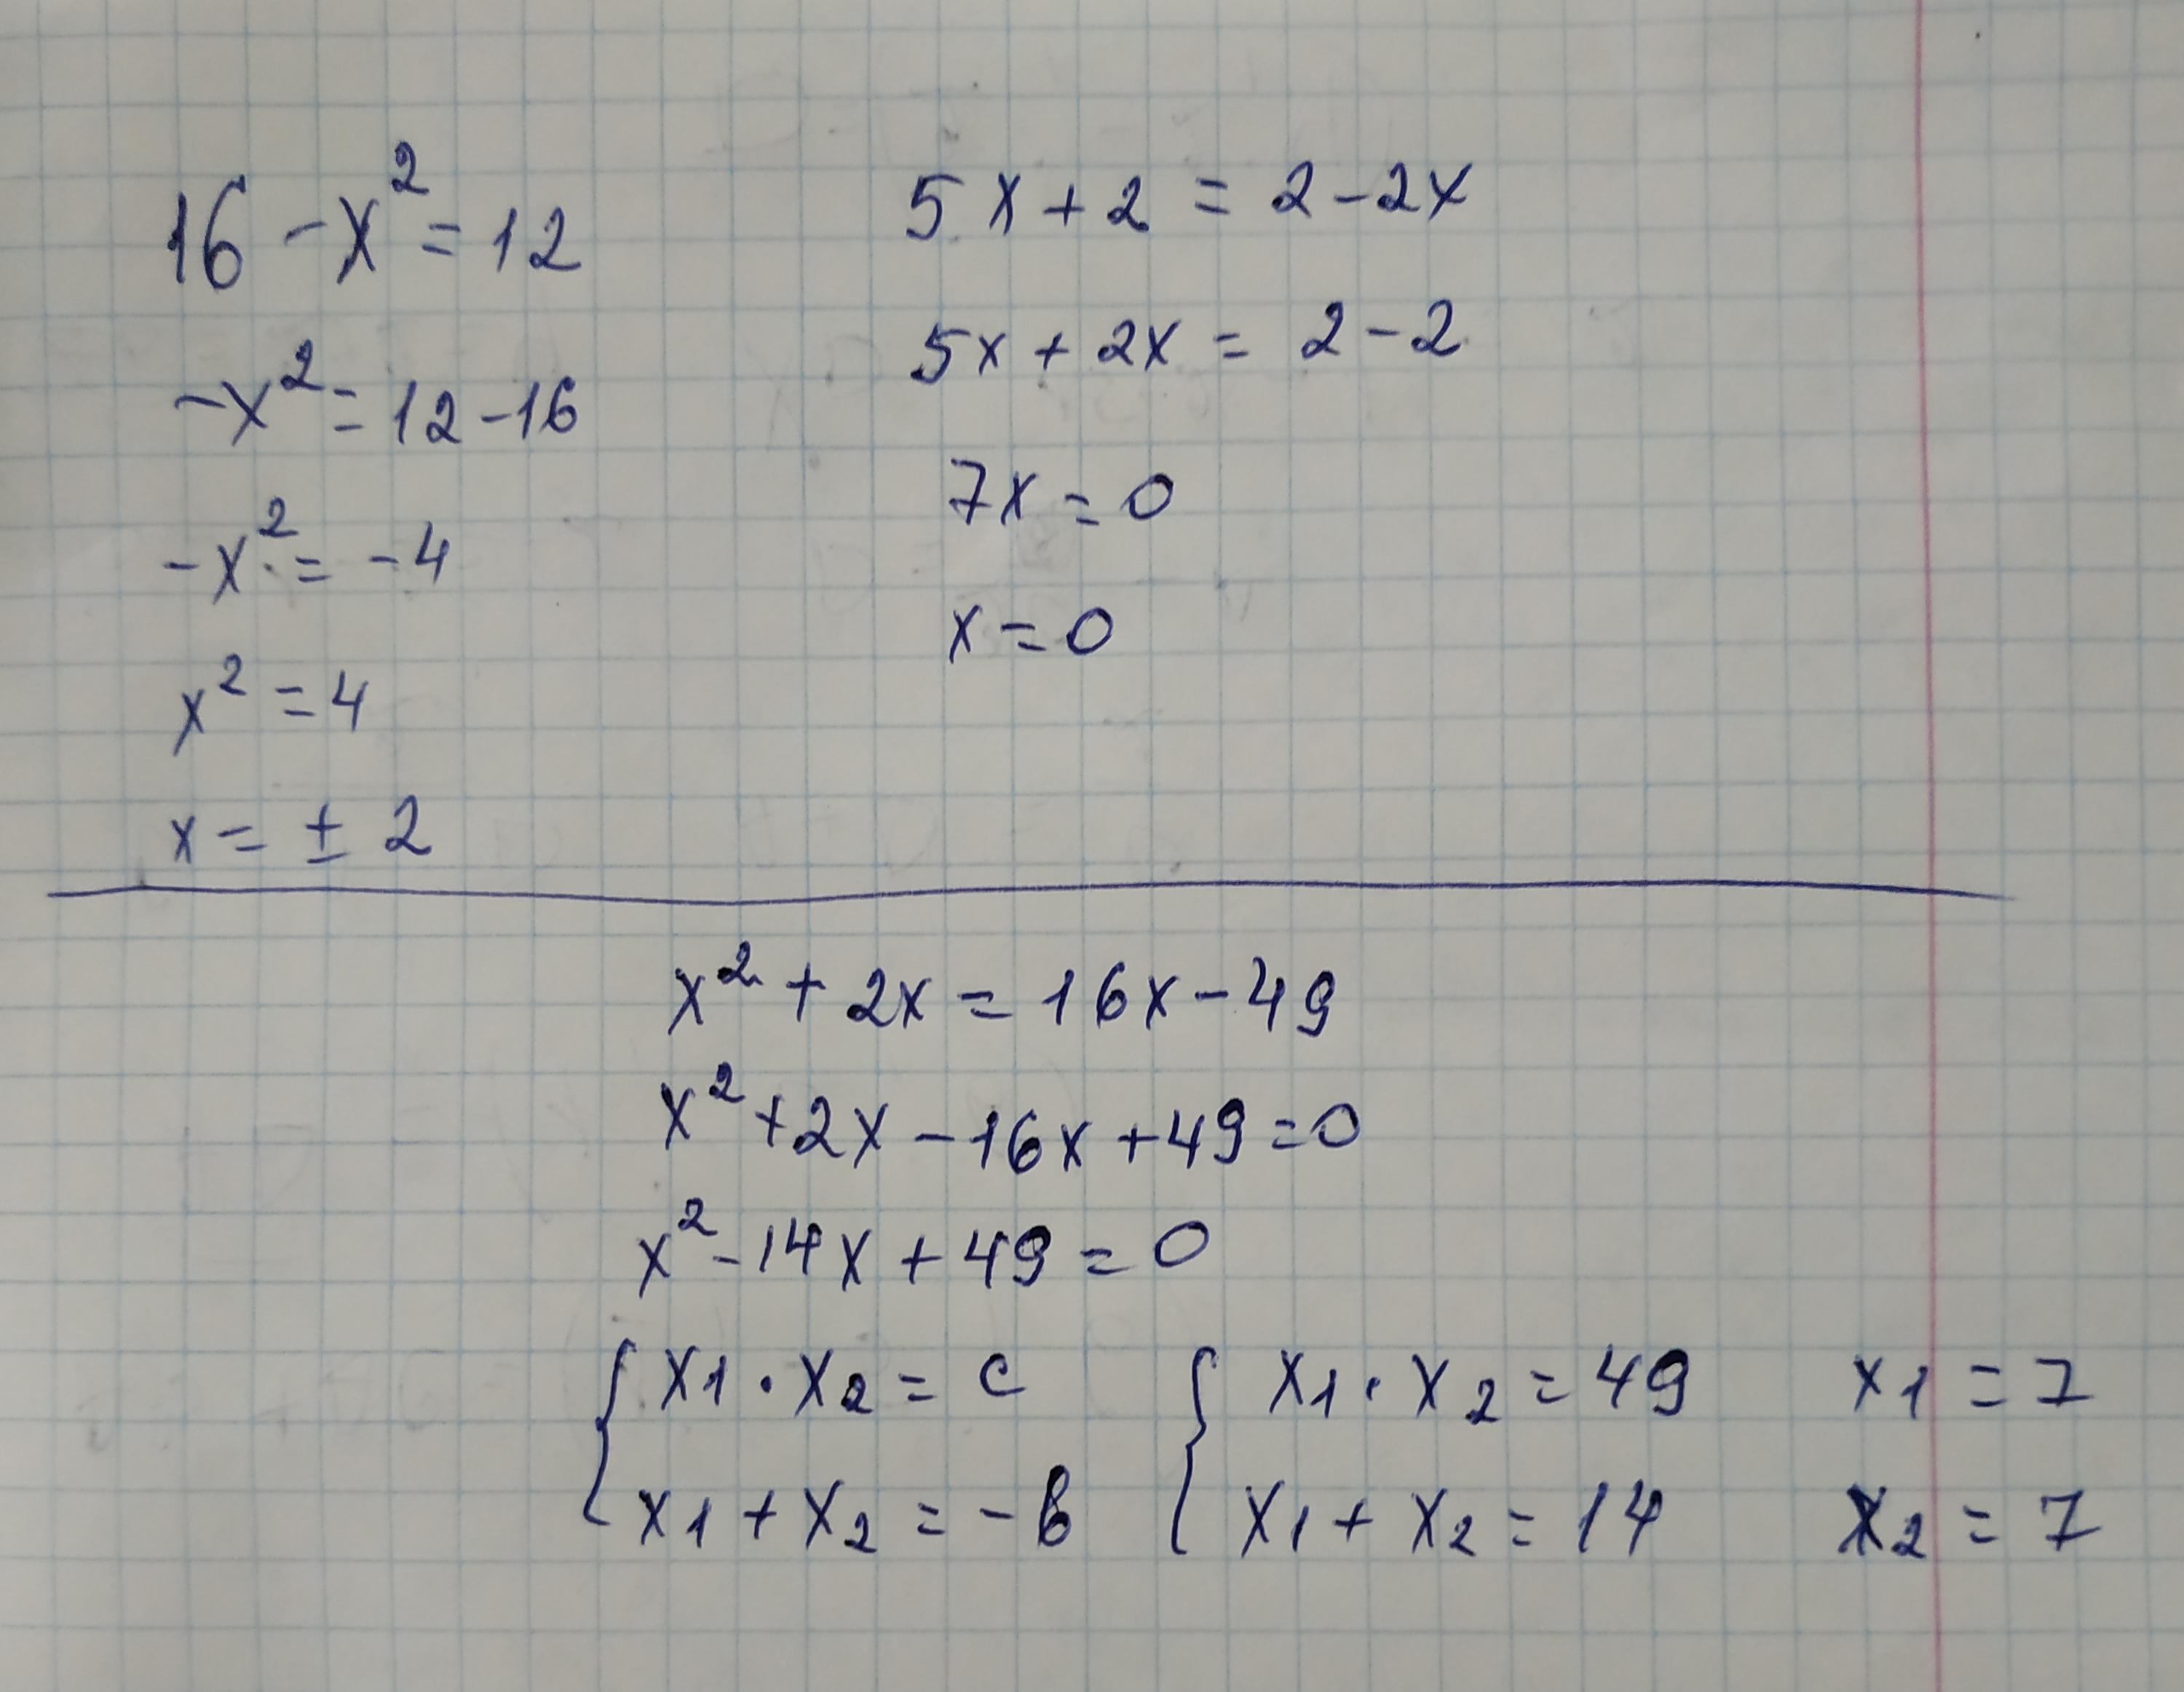 16 - x² = 12
-x² = 12 - 16
-x² = -4
x² = 4
x = ± 2
5x + 2 = 2 - 2x
5x + 2x = 2 - 2
7x = 0
x = 0
x² + 2x = 16x - 49
x² + 2x - 16x + 49 = 0
x² - 14x + 49 = 0
{ x1 · x2 = c { x1 · x2 = 49 x1 = 7
x1 + x2 = -b x1 + x2 = 14 x2 = 7